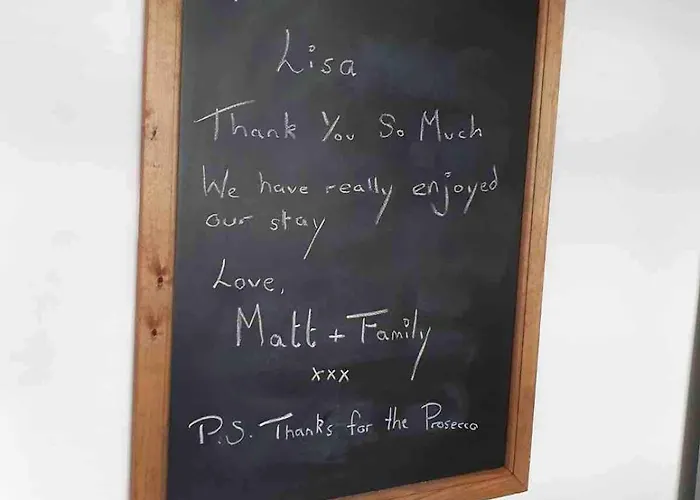 Lisa
Thank You So Much
We have really enjoyed
our stay
Love,
Matt + Family
xxx
P.S. Thanks for the Prosecco